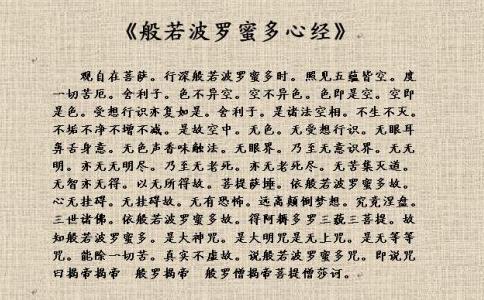 《般若波罗蜜多心经》
观自在菩萨。行深般若波罗蜜多时。照见五蕴皆空。度
一切苦厄。舍利子。色不异空。空不异色。色即是空。空即
是色。受想行识亦复如是。舍利子。是诸法空相。不生不灭。
不垢不净不增不减。是故空中。无色。无受想行识。无眼耳
鼻舌身意。无色声香味触法。无眼界。乃至无意识界。无无
明。亦无无明尽。乃至无老死。亦无老死尽。无苦集灭道。
无智亦无得。以无所得故。菩提萨埵。依般若波罗蜜多故。
心无挂碍。无挂碍故。无有恐怖。远离颠倒梦想。究竟涅盘。
三世诸佛。依般若波罗蜜多故。得阿耨多罗三藐三菩提。故
知般若波罗蜜多。是大神咒。是大明咒是无上咒。是无等等
咒。能除一切苦。真实不虚故。说般若波罗蜜多咒。即说咒
曰揭帝揭帝　般罗揭帝　般罗僧揭帝菩提僧莎诃。